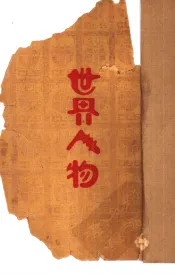 世界人物